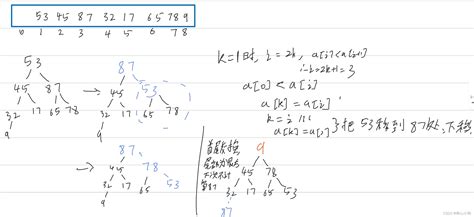 53 45 87 32 17 65 78 9
0 1 2 3 4 5 6 7 8
53
45 87
32 17 65 78
9
87
45 53
32 17 65 78
9
87
45 78
32 17 65 53
9
k=1时, i=2k, a[i]<a[i+1]
i=2k+1=3
a[0]<a[i]
a[k]=a[i]
k=i
a[k]=a[0]
}把53移到87处,下移
首尾交换
9
45 78
32 17 65 53
87